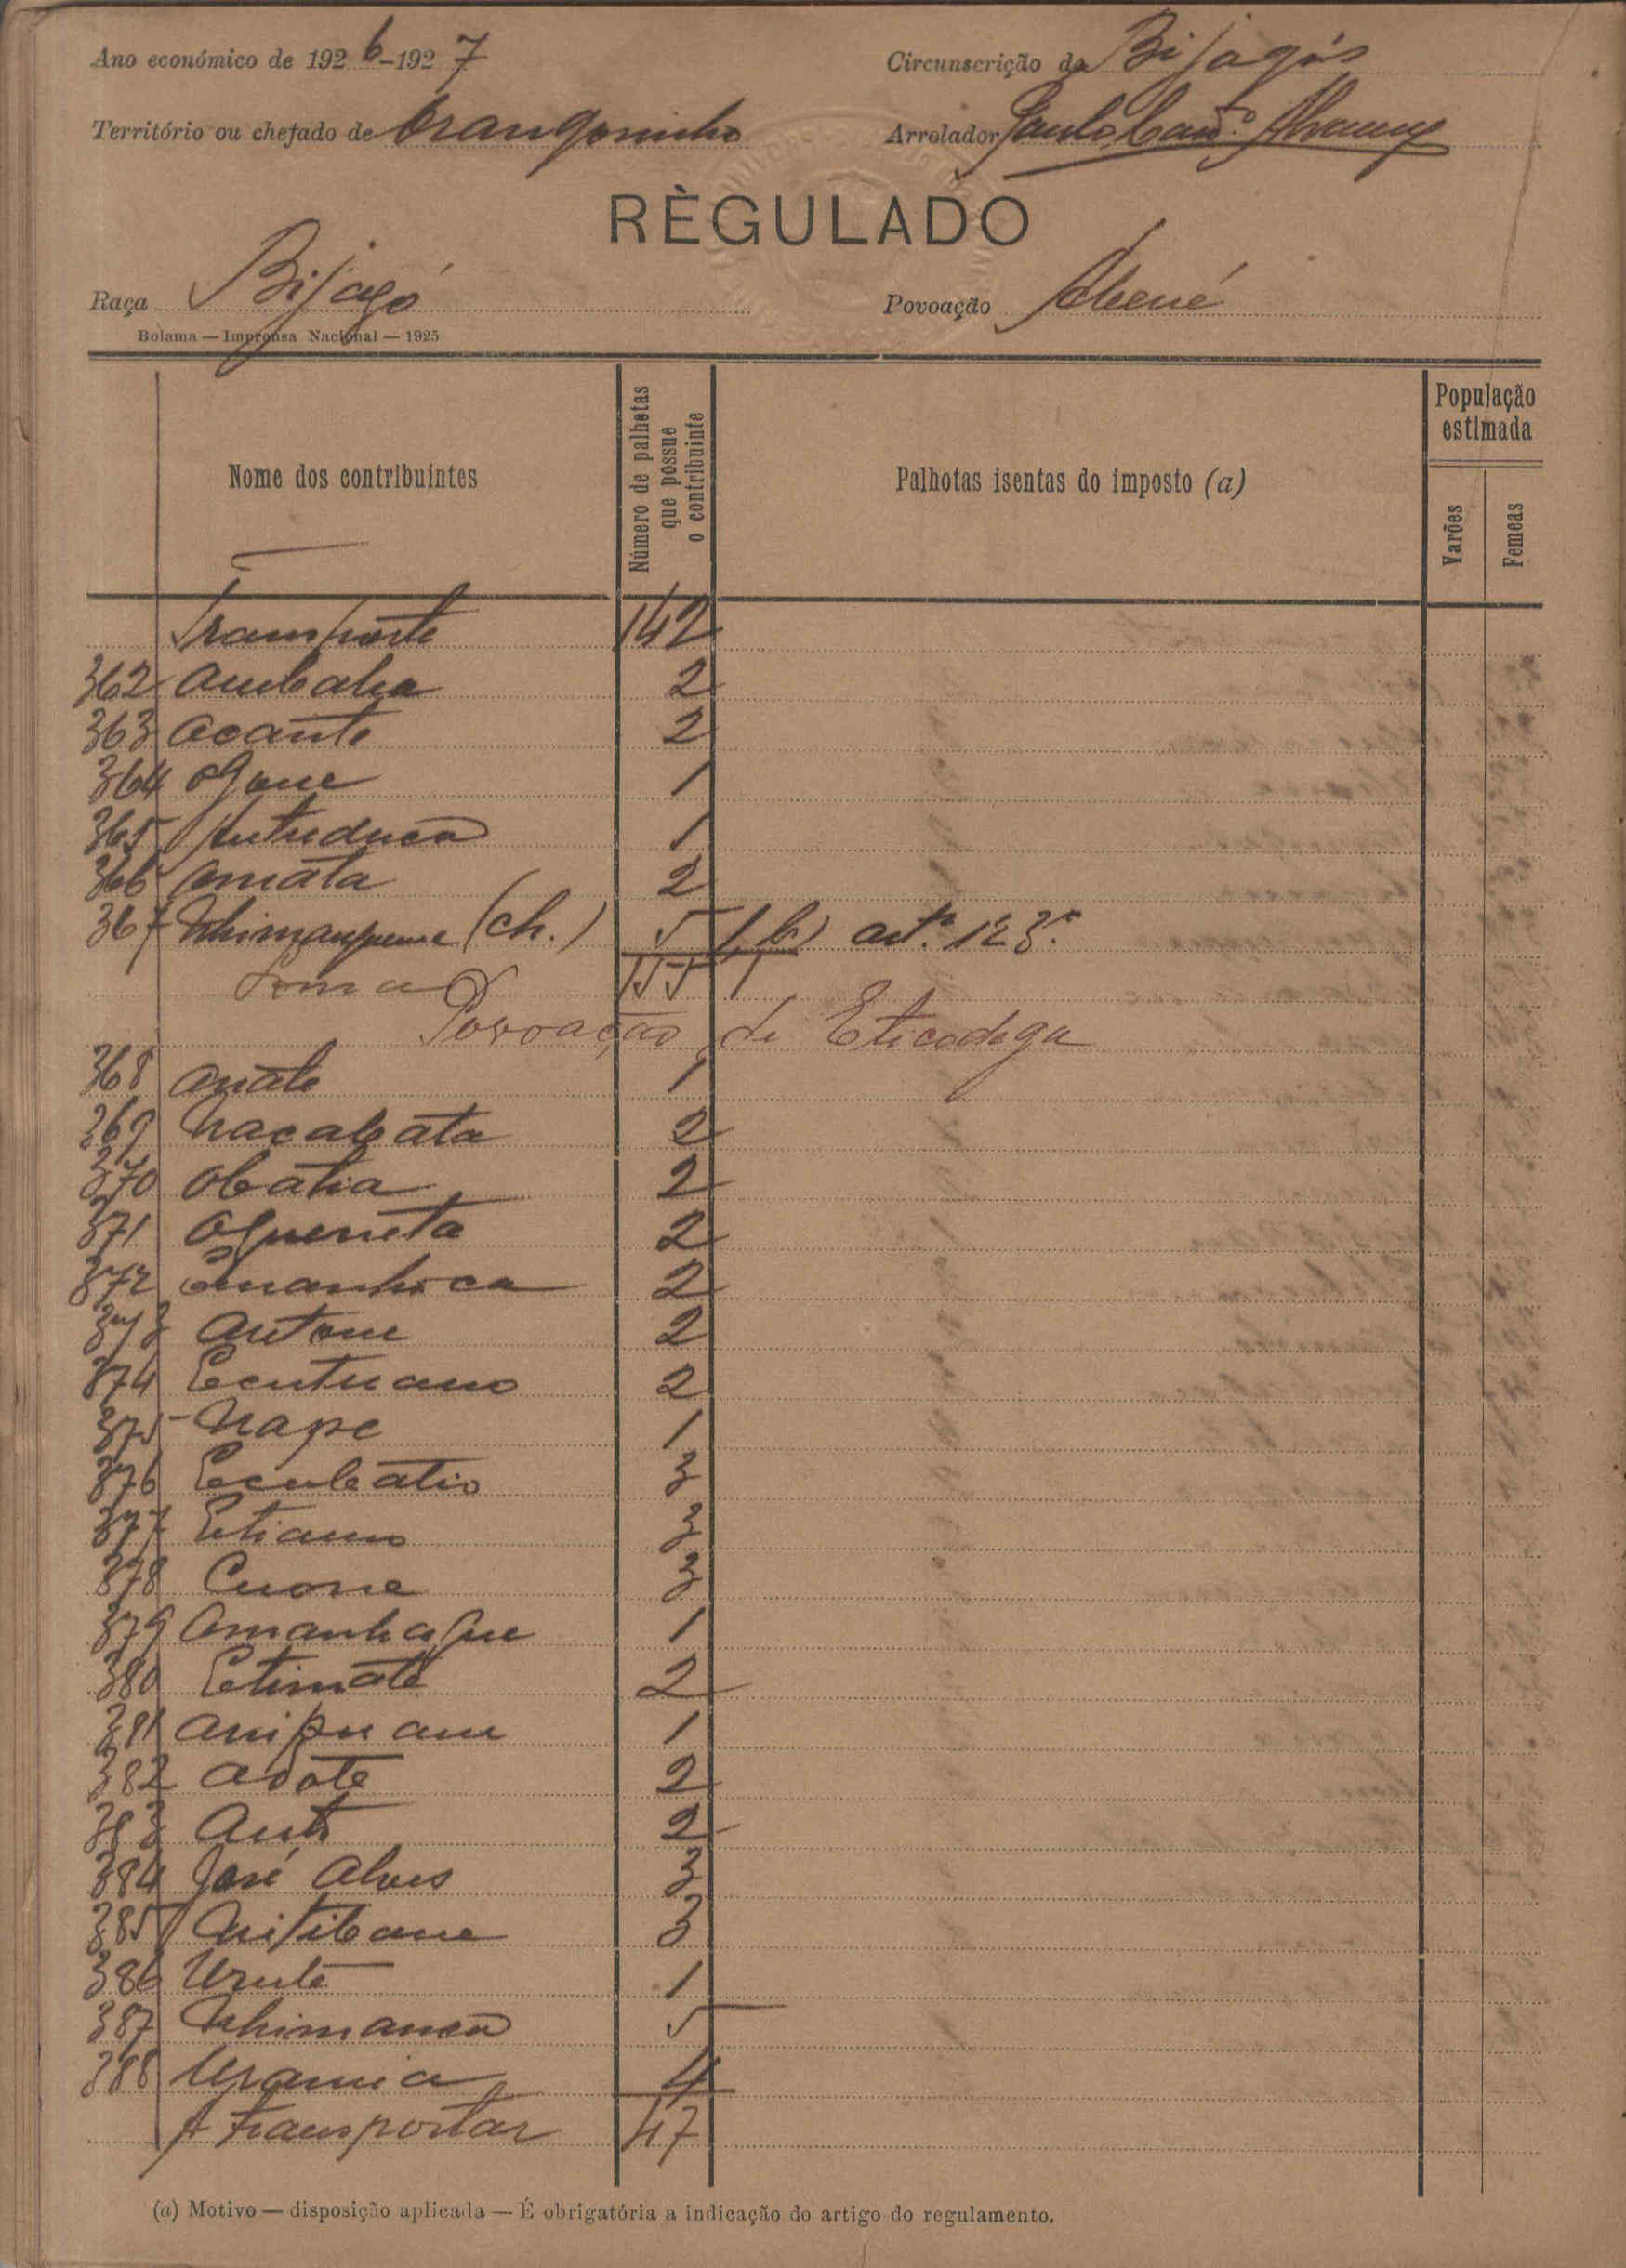 Ano económico de 1926-1927
Circunscrição de Bijagós
Território ou chefado de Orangosinho
Arrolador Paulo
RÈGULADO
Raça Bijagó
Povoação Abené
Bolama — Imprensa Nacional — 1925
Nome dos contribuintes
Número de palhotas que possue o contribuinte
Palhotas isentas do imposto (a)
População estimada
Varões
Femeas
Transporte 142
362 Ambaha 2
363 Acante 2
364 Ogane 1
365 1
366 Amata 2
367 (ch.) 5 (b) artº 123º
Soma 155
Povoação de Eticodega
368 Anate 1
369 Nacabata 2
370 Obatia 2
371 Oqueneta 2
372 Emanhoca 2
373 Antone 2
374 2
375 Nape 1
376 Ecubatio 3
377 Etiano 3
378 Cuone 3
379 Amanhaque 1
380 Etimate 2
381 1
382 Adote 2
383 2
384 José Alves 3
385 3
386 Urute 1
387 Nhimanca 5
388 4
A transportar 47
(a) Motivo — disposição aplicada — É obrigatória a indicação do artigo do regulamento.